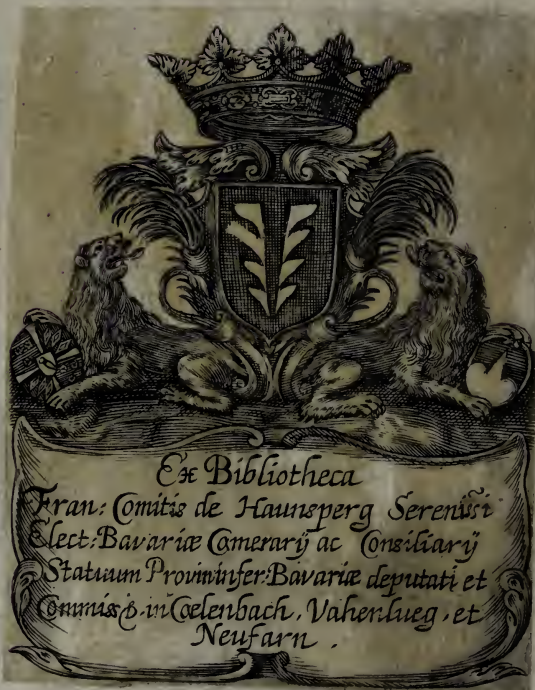 Ex Bibliotheca
Fran: Comitis de Haunsperg Serenissi
Elect: Bavariæ Camerarÿ ac Consiliarÿ
Statuum Provininfer: Bavariæ deputati et
Commiss in Cœlenbach, Vahenlueg, et
Neufarn.